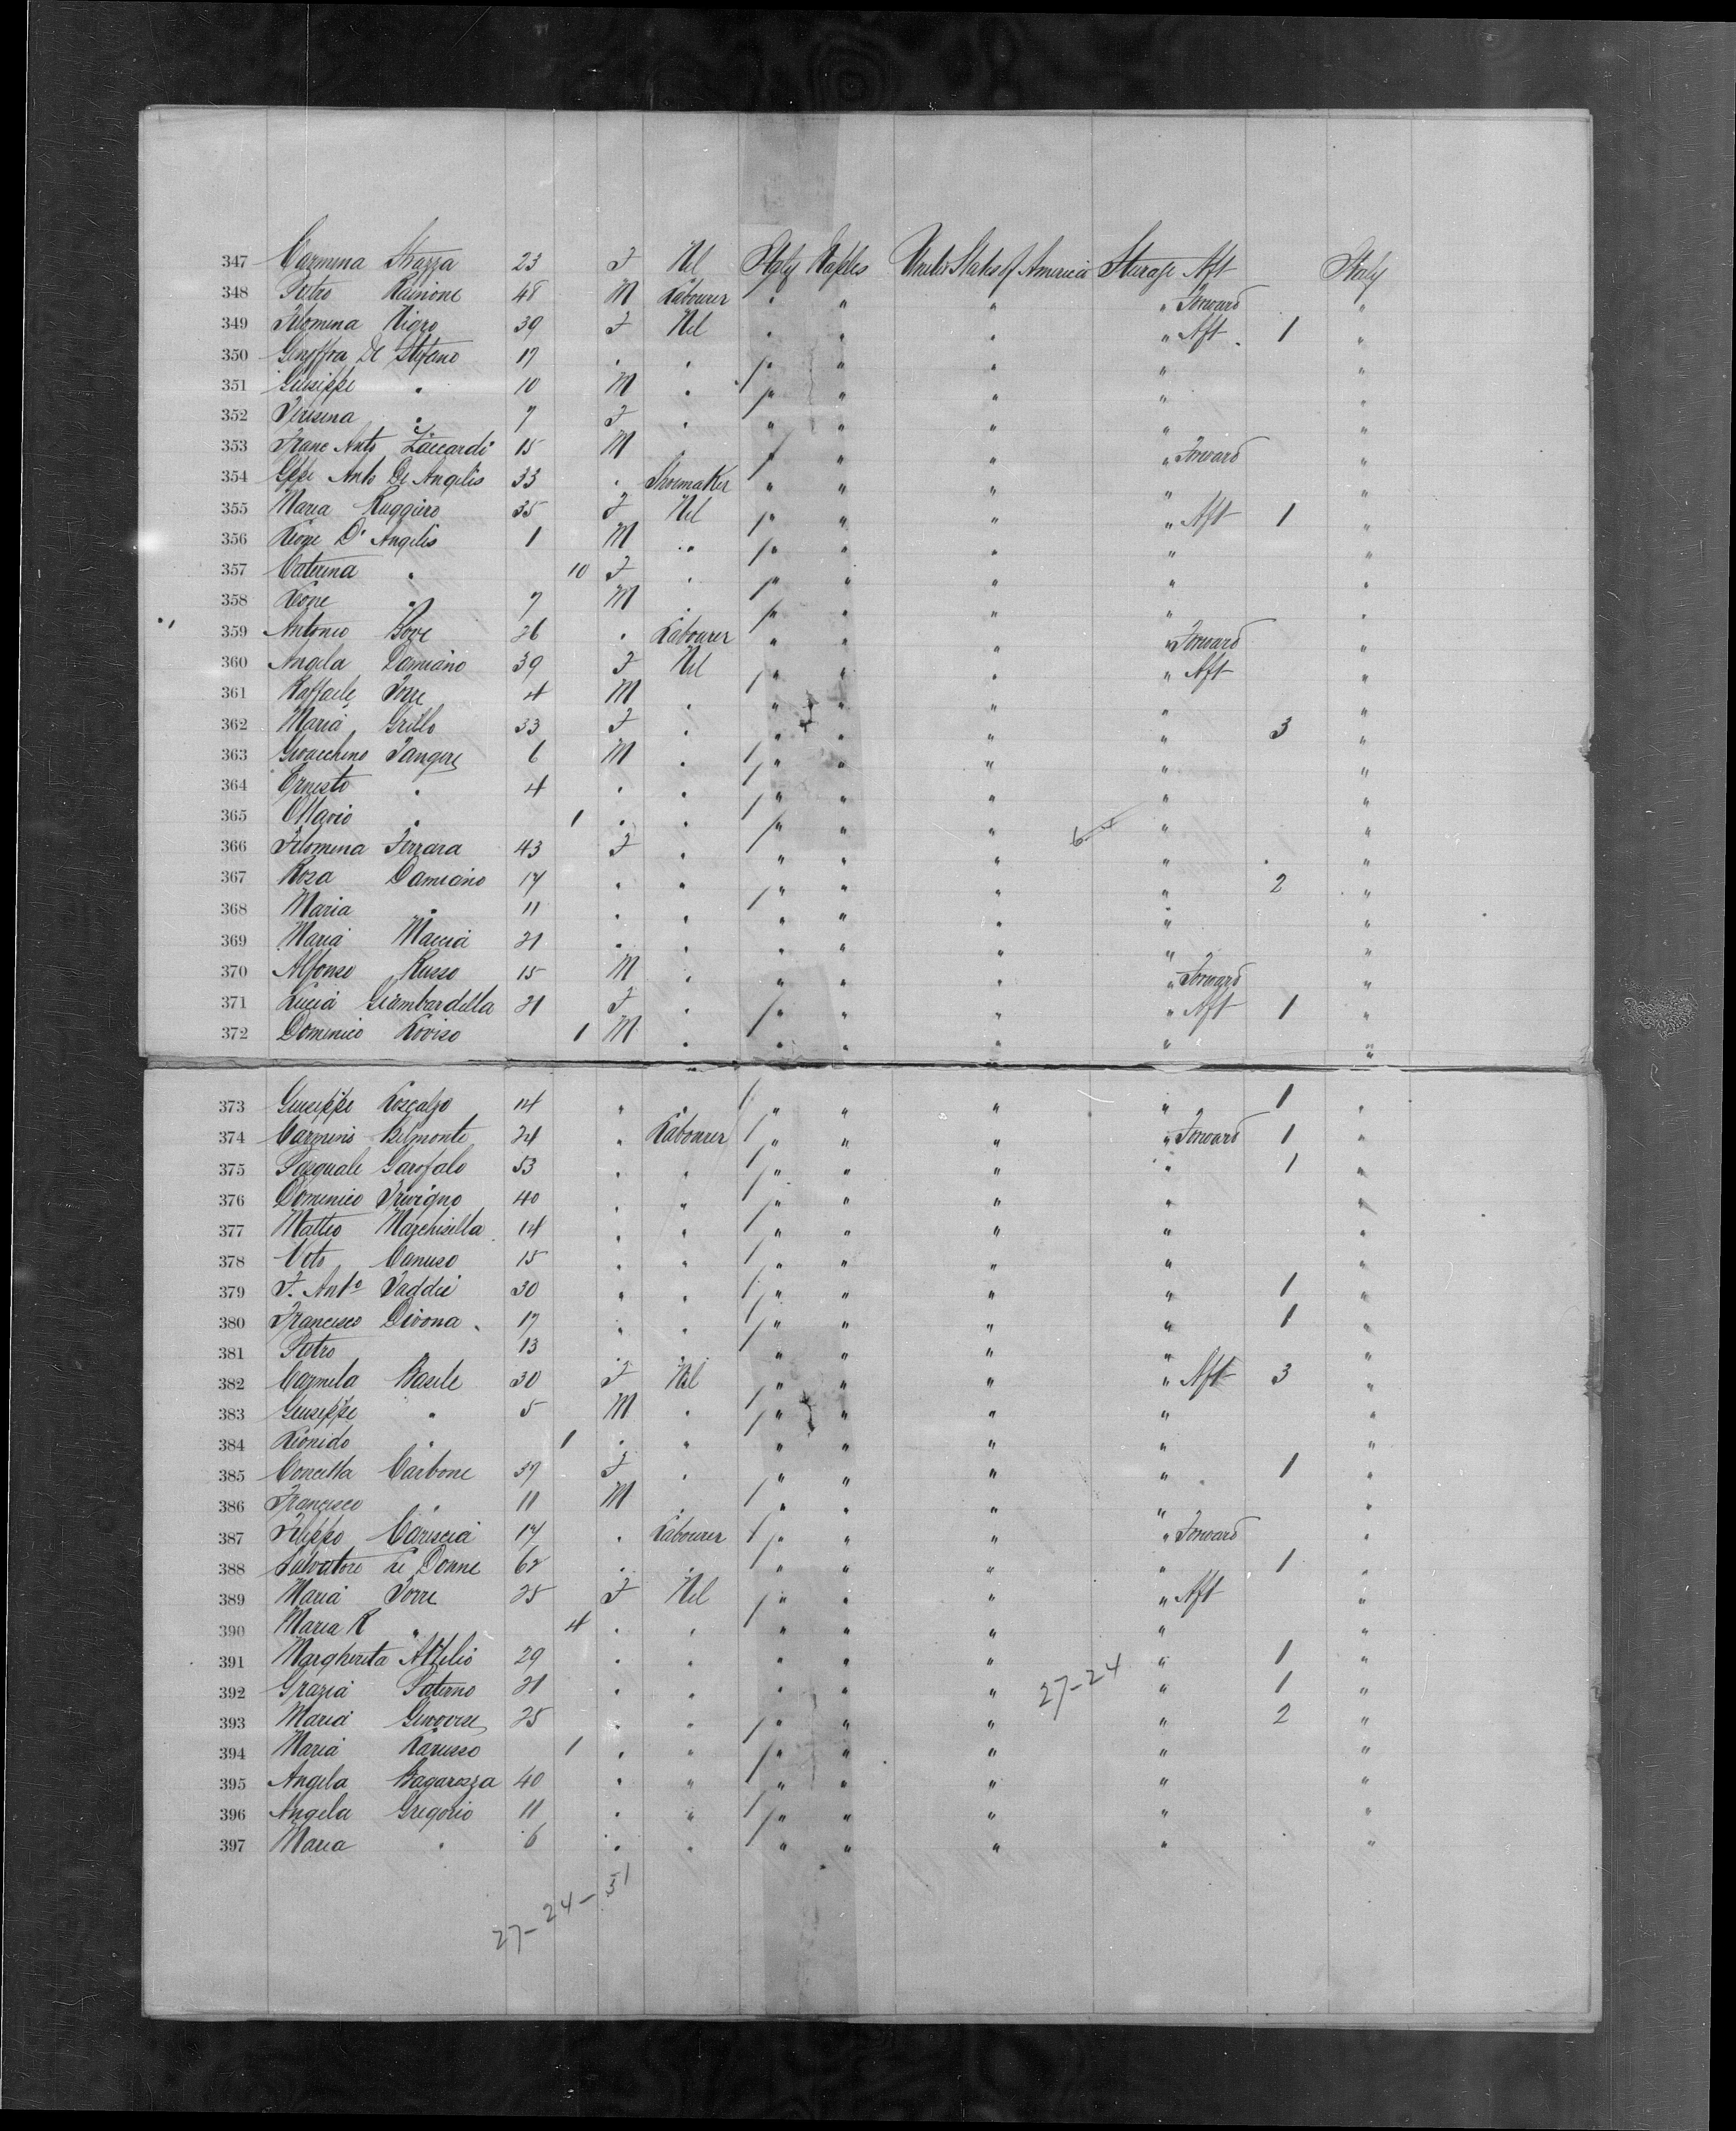 347 Carmina Strazza 23 F Nil Italy Naples United States of America Steerage Aft Italy
348 Pietro Rainone 48 M Labourer " " " " Forward "
349 Filomena Nigro 39 F Nil " " " " Aft 1 "
350 De Stefano 17 " " " " " " "
351 Giuseppe " 10 M " " " " " "
352 Teresina " 7 F " " " " " "
353 Franc Anto Zaccardi 15 M " " " " Forward "
354 Gppe Anto De Angelis 33 " Shoemaker " " " " "
355 Maria Ruggiero 35 F Nil " " " " Aft 1 "
356 Leone D'Angelis 1 M " " " " " "
357 Caterina " 10 F " " " " " "
358 Leone " 7 M " " " " " "
359 Antonio Bove 26 " Labourer " " " " Forward "
360 Angela Damiano 39 F Nil " " " " Aft "
361 Raffaele Torre 4 M " " " " " "
362 Maria Grillo 33 F " " " " " 3 "
363 Gioacchino Tangere 6 M " " " " " "
364 Ernesto " 4 " " " " " " "
365 Ottavio " 1 " " " " " " "
6-4
366 Filomena Ferrara 43 F " " " " " "
367 Rosa Damiano 17 " " " " " " 2 "
368 Maria " 11 " " " " " " "
369 Maria Maccia 21 " " " " " " "
370 Alfonso Russo 15 M " " " " " Forward "
371 Lucia Giambardella 21 F " " " " " Aft 1 "
372 Domenico Loviso 1 M " " " " " "
373 Giuseppe Loscalzo 14 " " " " " " 1 "
374 Carmine Belmonte 24 " Labourer " " " " Forward 1 "
375 Pasquale Garofalo 53 " " " " " " 1 "
376 Domenico Trivigno 40 " " " " " " "
377 Matteo Marchisella 14 " " " " " " "
378 Vito Canuso 15 " " " " " " "
379 F. Anto Taddei 30 " " " " " " 1 "
380 Francesco Divona 17 " " " " " " 1 "
381 Pietro " 13 " " " " " " "
382 Carmela Basile 30 F Nil " " " " Aft 3 "
383 Giuseppe " 5 M " " " " " "
384 Leonido " 1 " " " " " " "
385 Concetta Carbone 37 F " " " " " 1 "
386 Francesco " 11 M " " " " " "
387 Filippo Cariscia 17 " Labourer " " " " Forward "
388 Salvatore Le Donne 62 " " " " " " 1 "
389 Maria Torre 25 F Nil " " " " Aft "
390 Maria R " 4 " " " " " " "
391 Margherita Attilio 29 " " " " " " 1 "
392 Grazia Paterno 21 " " " " 27-24 " 1 "
393 Maria Genovese 25 " " " " " " 2 "
394 Maria Larusso 1 " " " " " " "
395 Angela Bagarozza 40 " " " " " " "
396 Angela Gregorio 11 " " " " " " "
397 Maria " 6 " " " " " " "
27-24-51